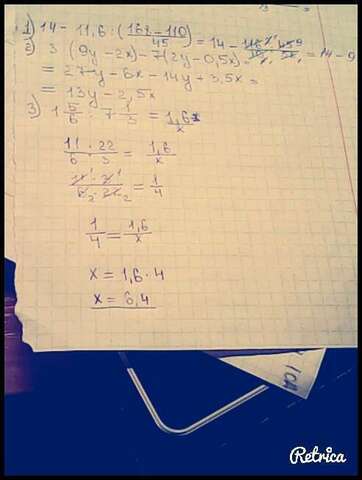 1) 14 - 11,6 : (168 - 110 / 45) = 14 - = 14 - 9
2) 3 (9y - 2x) - 7(2y - 0,5x) =
= 27y - 6x - 14y + 3,5x =
= 13y - 2,5x
3) 1 5/6 : 7 1/3 = 1,6/x
11/6 : 22/3 = 1,6/x
11 · 3 / 6 · 22 = 1/4
1/4 = 1,6/x
x = 1,6 · 4
x = 6,4
Retrica